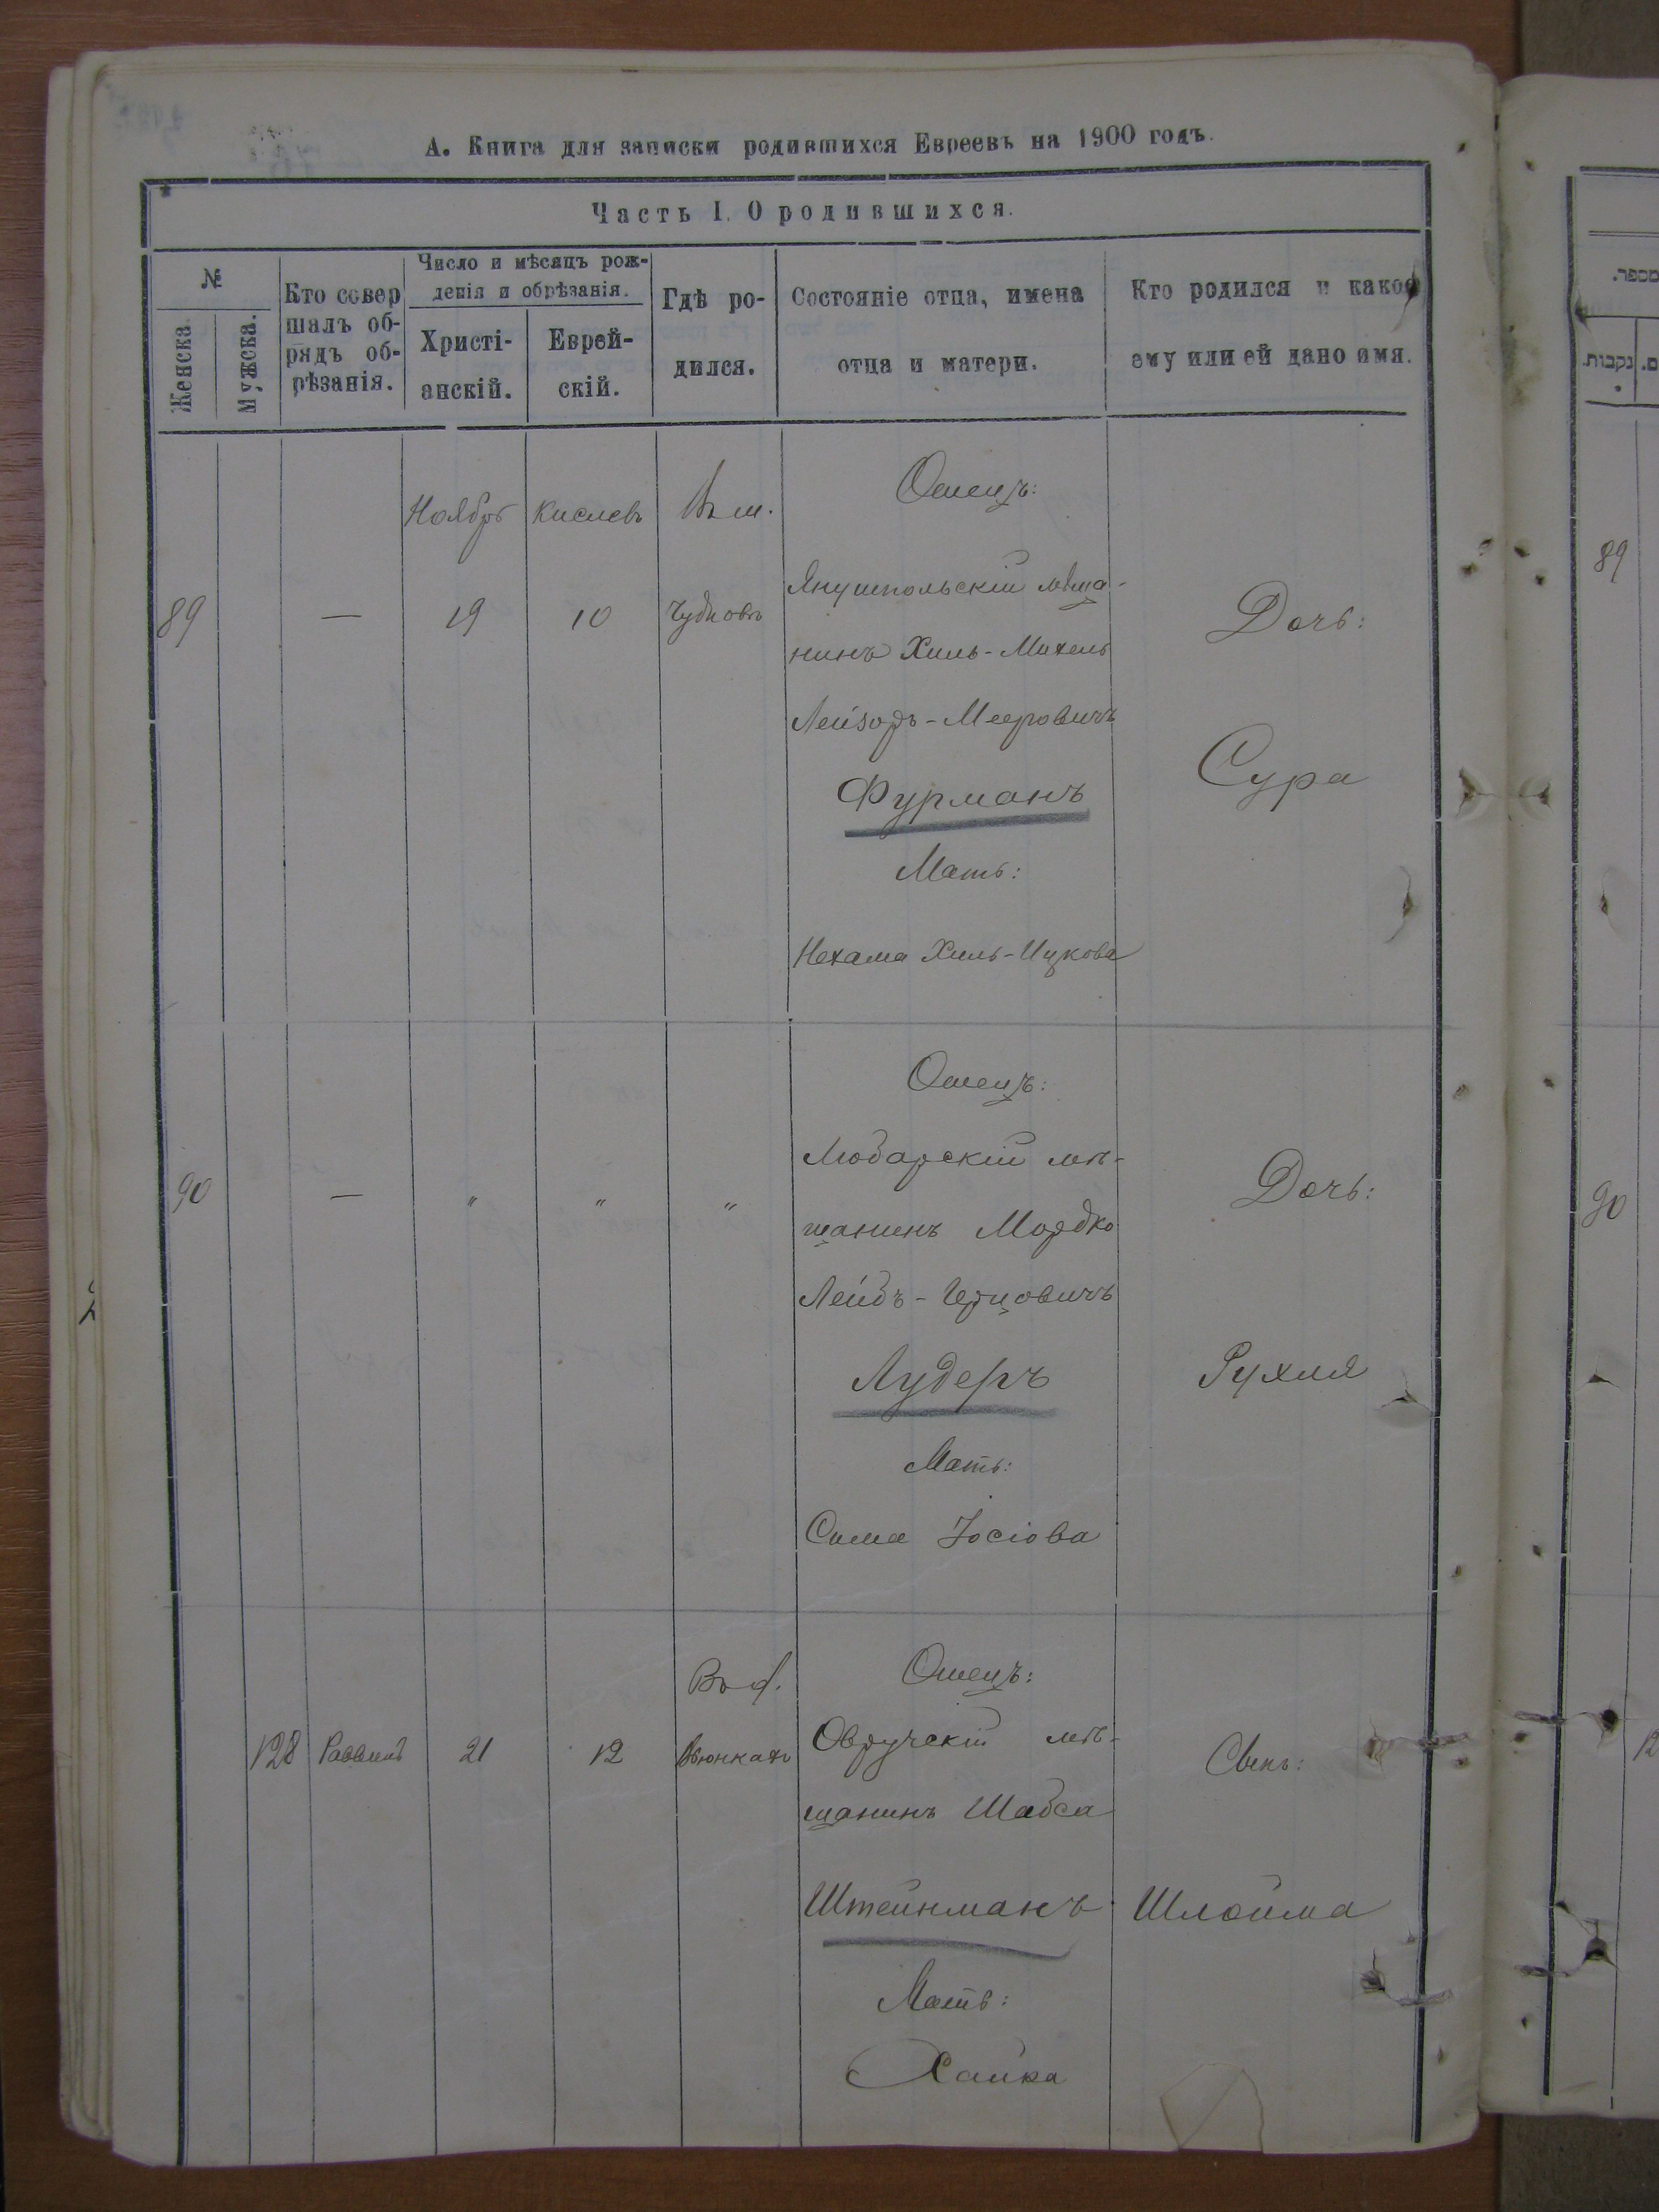 А. Книга для записки родившихся Евреевъ на 1900 годъ.
Часть I. О родившихся.
№
Женска.
Мужска.
Кто совер
шалъ об-
рядъ об-
рѣзанія.
Число и мѣсяцъ рож-
денія и обрѣзанія.
Христі-
анскій.
Еврей-
скій.
Гдѣ ро-
дился.
Состояніе отца, имена
отца и матери.
Кто родился и какое
ему или ей дано имя.
Ноябрь Кислевъ Въ м. Отецъ:
89 — 19 10 Чудновъ
Янушпольскій мѣща-
нинъ Хиль-Михель
Лейзоръ-Мееровичъ
Фурманъ
Мать:
Нехама Хиль-Ицкова
Дочь:
Сура
Отецъ:
90 — " " "
Любарскій мѣ-
щанинъ Мордко
Лейбъ-Герцовичъ
Лудеръ
Мать:
Сима Іосіова
Дочь:
Рухля
Въ с. Отецъ:
128 Раввинъ 21 12
Овручскій мѣ-
щанинъ Шабса
Штейнманъ
Мать:
Хайка
Сынъ:
Шлойма
מספר.
נקבות.
89
90